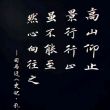 高山仰止
景行行止
虽不能至
然心向往之
——司马迁《史记·孔